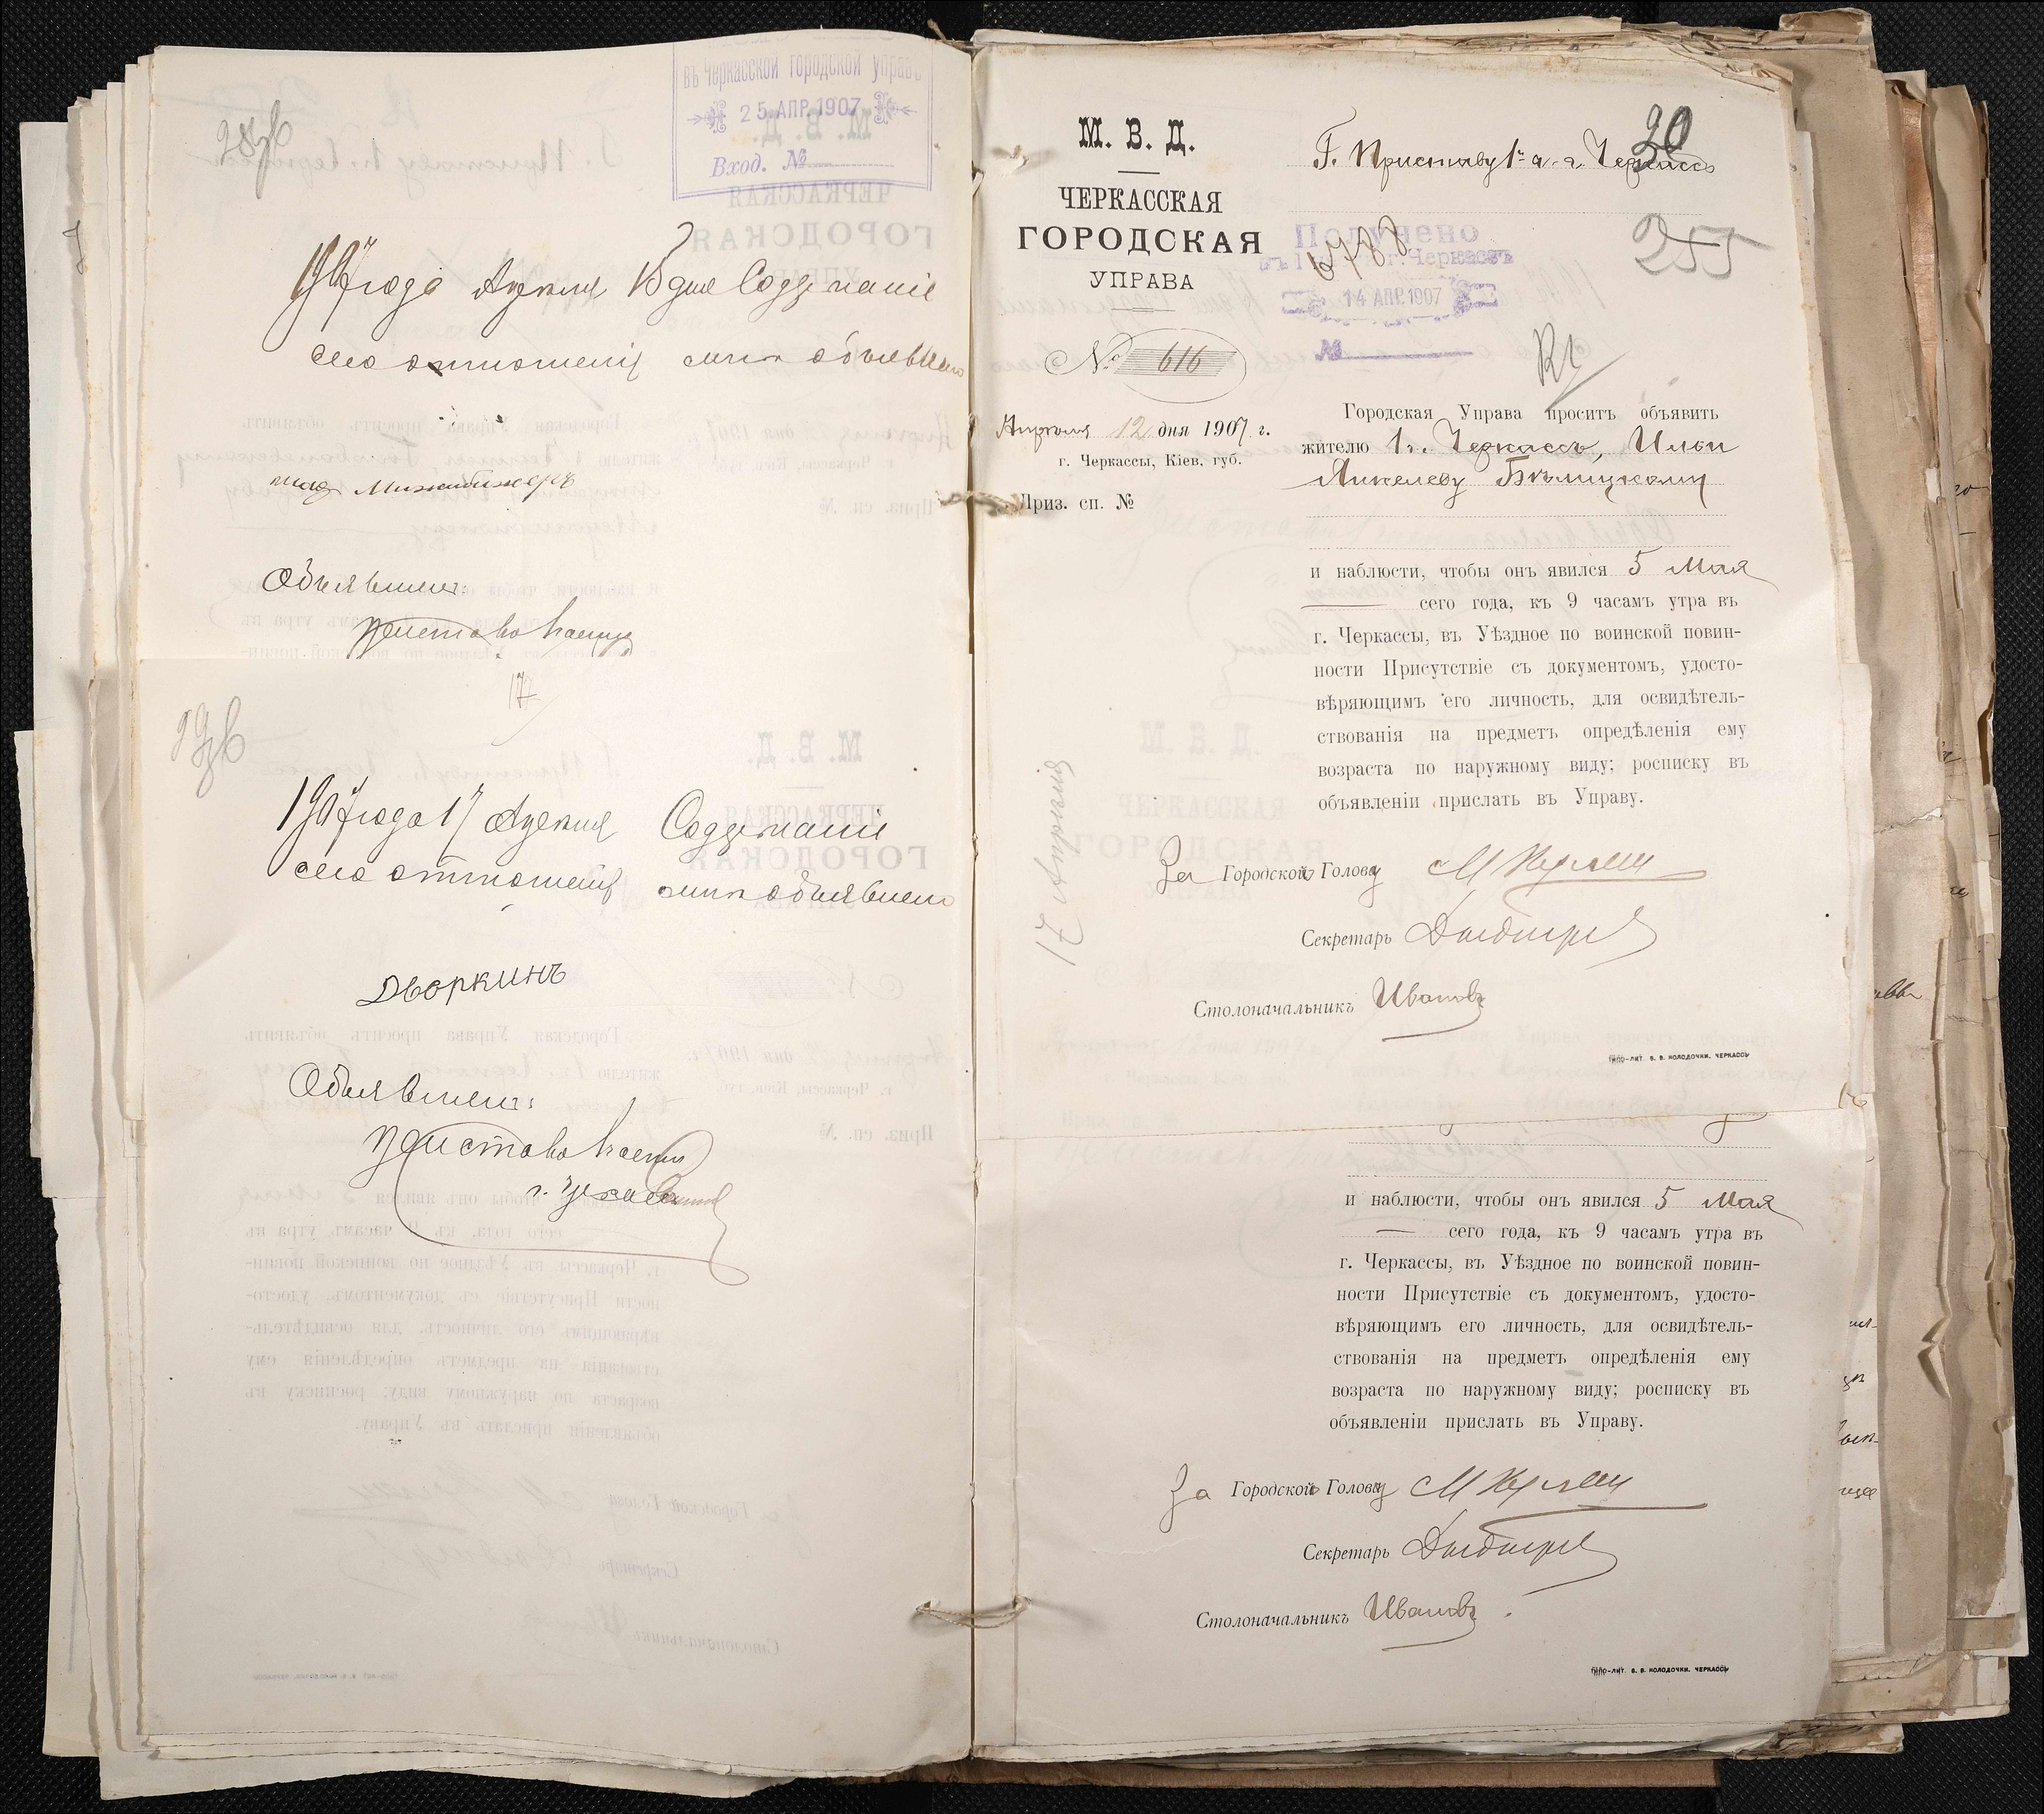 въ Черкасской городской управѣ
25 АПР. 1907
Вход. №
1907 года Апреля 15 дня Содержаніе
сего отношенія мнѣ объявлено
Объявилъ:
17
1907 года 17 Апреля Содержаніе
сего отношенія мнѣ объявлено
Дворкинъ
Объявилъ:
М. В. Д.
ЧЕРКАССКАЯ
ГОРОДСКАЯ
УПРАВА
№ 616
Апреля 12 дня 1907 г.
г. Черкассы, Кіев. губ.
Приз. сп. №
20
Г. Приставу 1 ч. г. Черкассъ
255
6788
Получено
14 АПР. 1907
№
Городская Управа проситъ объявить
жителю г. Черкассъ, Ильи
Янкелеву Бѣлицкому
и наблюсти, чтобы онъ явился 5 Мая
сего года, къ 9 часамъ утра въ
г. Черкассы, въ Уѣздное по воинской повин-
ности Присутствіе съ документомъ, удосто-
вѣряющимъ его личность, для освидѣтель-
ствованія на предметъ опредѣленія ему
возраста по наружному виду; росписку въ
объявленіи прислать въ Управу.
17 Апреля
За Городской Голову
Секретарь
Столоначальникъ Ивановъ
ТИПО-ЛИТ. В. В. КОЛОДОЧКИ. ЧЕРКАССЫ
и наблюсти, чтобы онъ явился 5 Мая
сего года, къ 9 часамъ утра въ
г. Черкассы, въ Уѣздное по воинской повин-
ности Присутствіе съ документомъ, удосто-
вѣряющимъ его личность, для освидѣтель-
ствованія на предметъ опредѣленія ему
возраста по наружному виду; росписку въ
объявленіи прислать въ Управу.
За Городской Голову
Секретарь
Столоначальникъ Ивановъ
ТИПО-ЛИТ. В. В. КОЛОДОЧКИ. ЧЕРКАССЫ